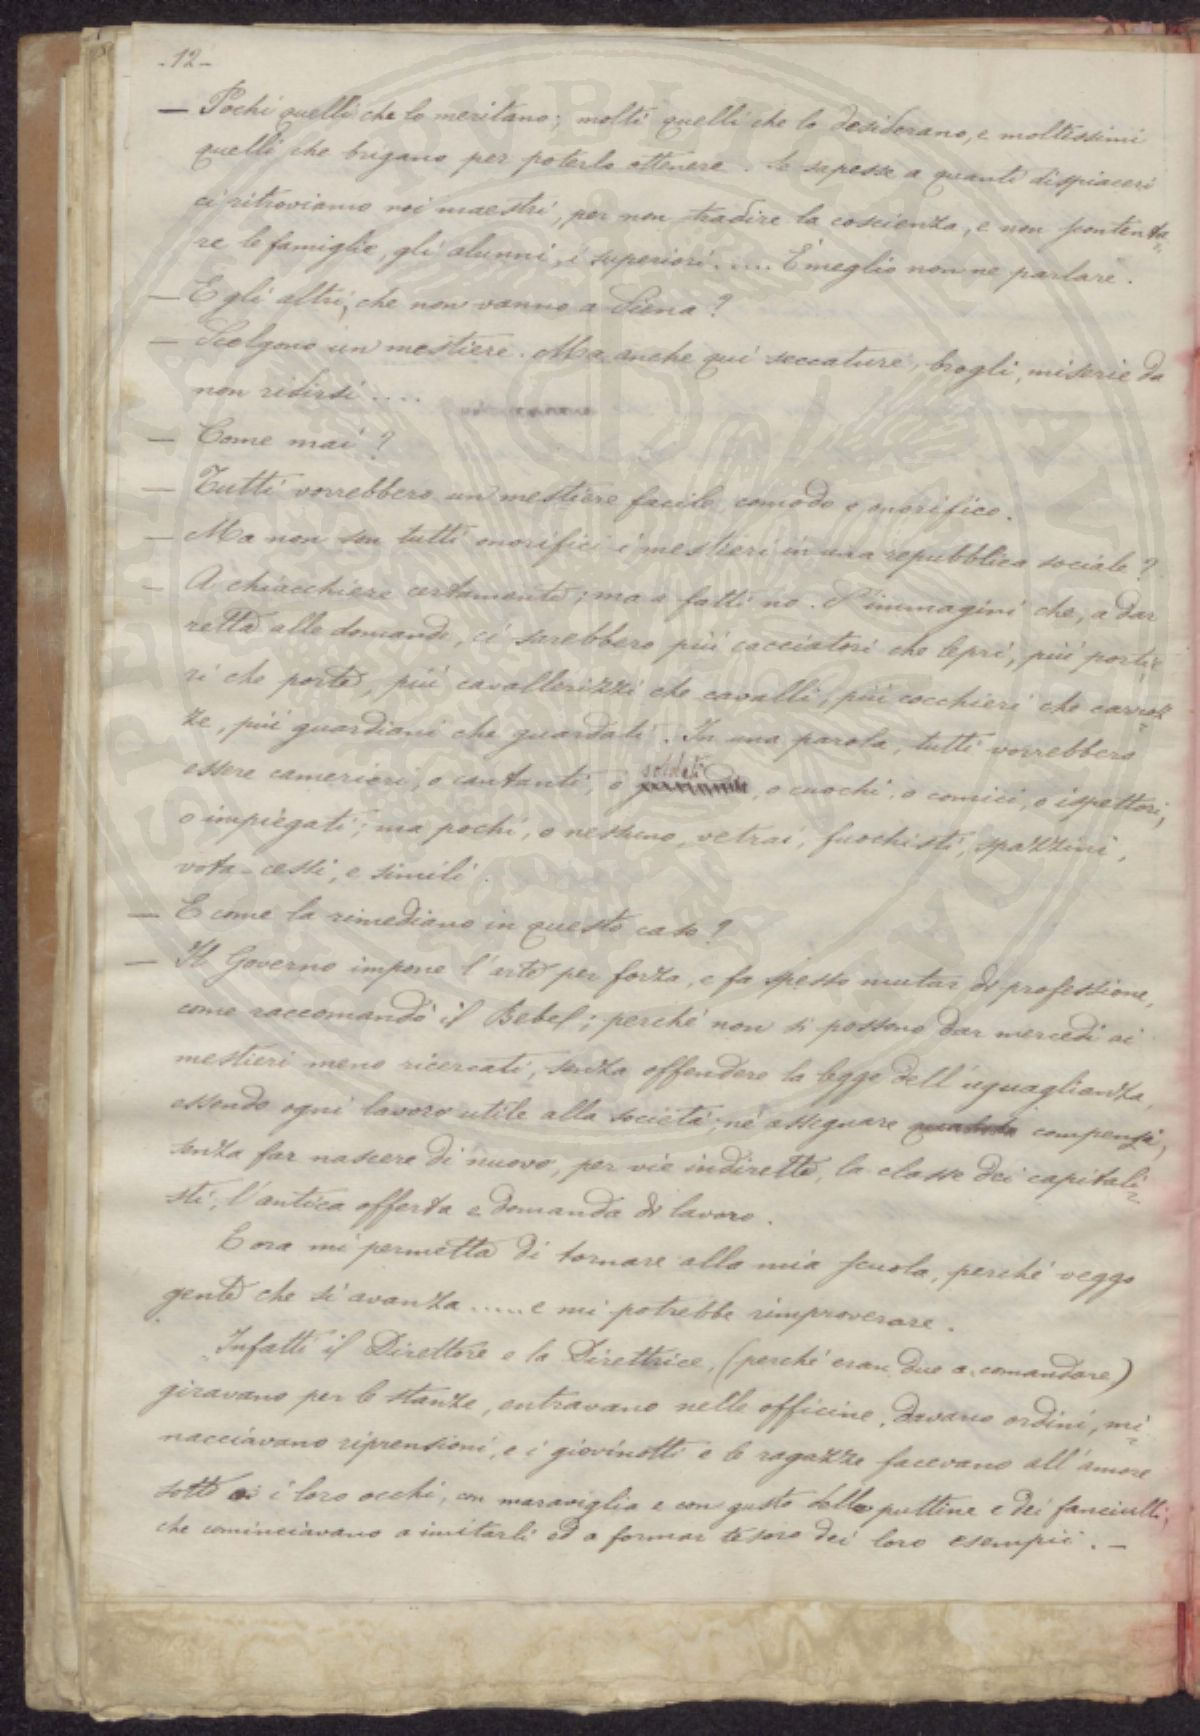 -12-
— Pochi quelli che lo meritano; molti quelli che lo desiderano, e moltissimi
quelli che brigano per poterlo ottenere. Se sapesse a quanti dispiaceri
ci ritroviamo noi maestri, per non tradire la coscienza, e non scontenta=
re le famiglie, gli alunni, i superiori..... È meglio non ne parlare.
— E gli altri, che non vanno a Siena?
— Scelgono un mestiere. Ma anche qui seccature, brogli, miserie da
non ridirsi....
— Come mai?
— Tutti vorrebbero un mestiere facile, comodo e onorifico.
— Ma non son tutti onorifici i mestieri in una repubblica sociale?
— A chiacchiere certamente; ma a fatti no. S'immagini che, a dar
retta alle domande, ci sarebbero più cacciatori che lepri, più portie=
ri che porte, più cavallerizzi che cavalli, più cocchieri che carroz=
ze, più guardiani che guardati. In una parola, tutti vorrebbero
essere camerieri, o cantanti, o soldati, o cuochi, o comici, o ispettori,
o impiegati; ma pochi, o nessuno, vetrai, fuochisti, spazzini,
vota-cessi, e simili.
— E come la rimediano in questo caso?
— Il Governo impone l'arte per forza, e fa spesso mutar di professione,
come raccomandò il Bebel; perché non si possono dar mercedi ai
mestieri meno ricercati, senza offendere la legge dell'uguaglianza,
essendo ogni lavoro utile alla società; né assegnare compensi,
senza far nascere di nuovo, per vie indirette, la classe dei capitali=
sti, l'antica offerta e domanda di lavoro.
E ora mi permetta di tornare alla mia scuola, perché veggo
gente che si avanza..... e mi potrebbe rimproverare.
Infatti il Direttore e la Direttrice, (perché eran due a comandare)
giravano per le stanze, entravano nelle officine, davano ordini, mi=
nacciavano riprensioni, e i giovinotti e le ragazze facevano all'amore
sotto i loro occhi, con maraviglia e con gusto delle puttine e dei fanciulli,
che cominciavano a imitarli ed a formar tesoro dei loro esempii. —